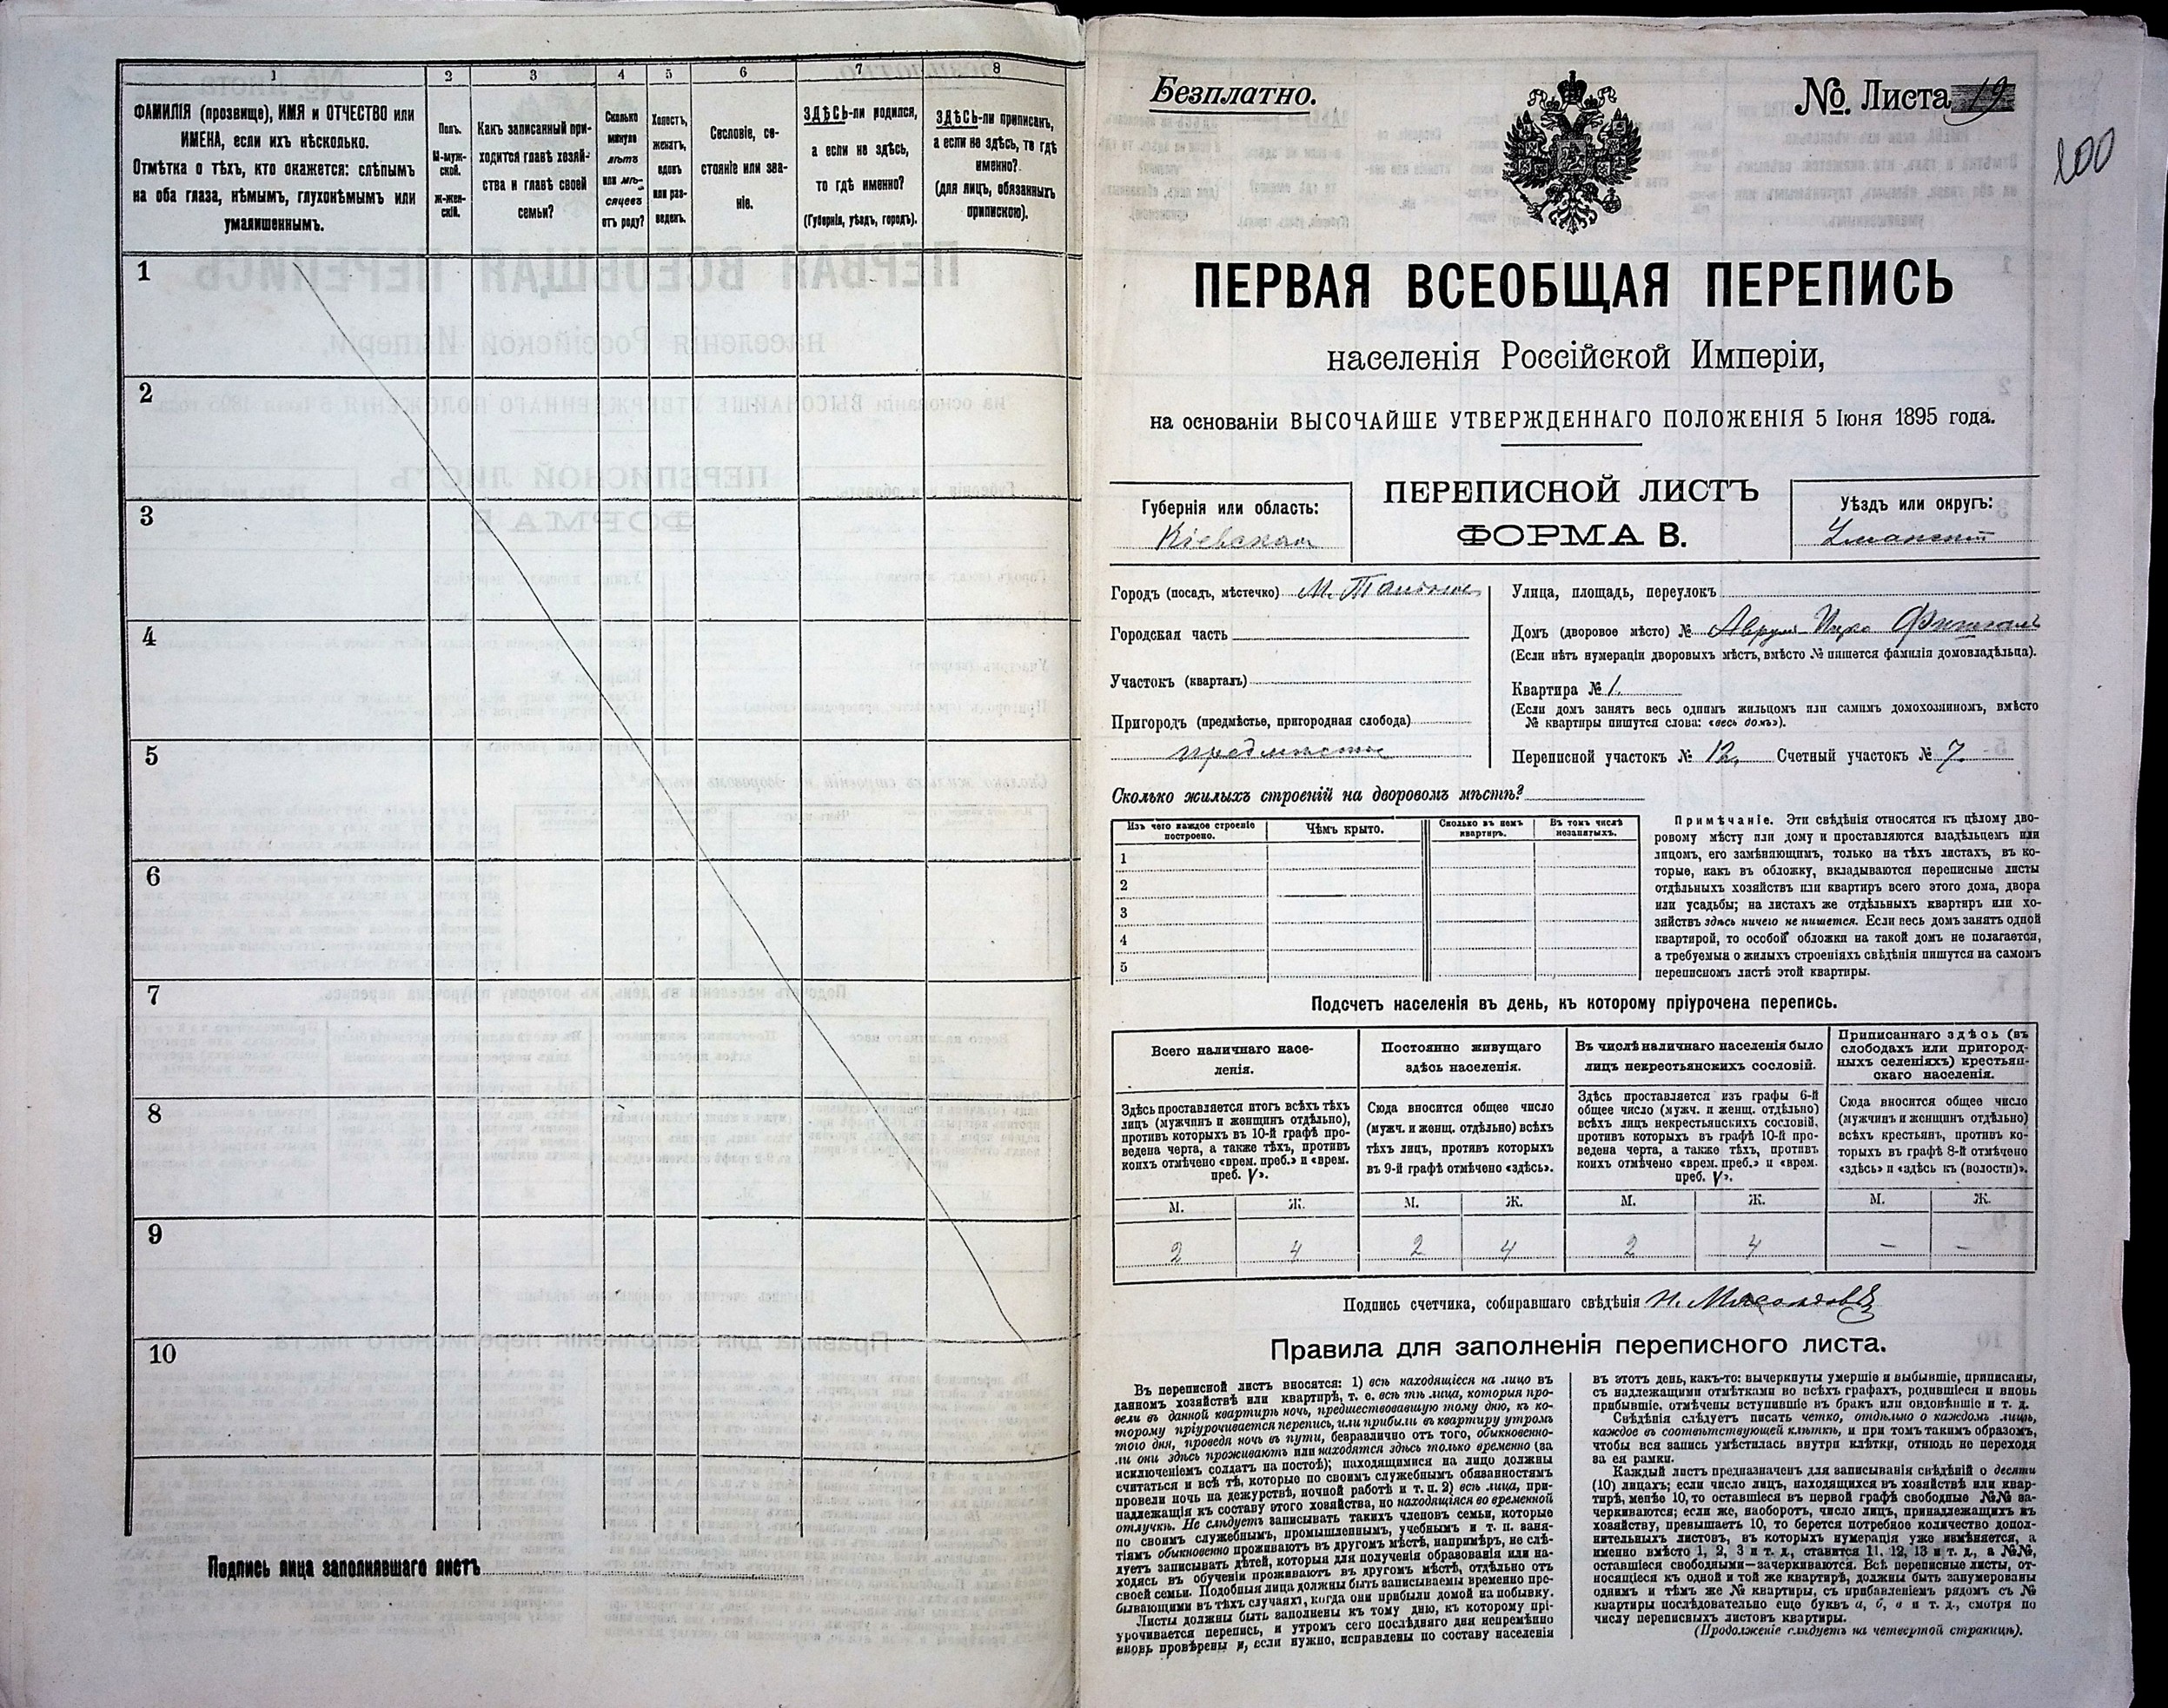 1
2
3
4
5
6
7
8
ФАМИЛІЯ (прозвище), ИМЯ и ОТЧЕСТВО или
ИМЕНА, если ихъ нѣсколько.
Отмѣтка о тѣхъ, кто окажется: слѣпымъ
на оба глаза, нѣмымъ, глухонѣмымъ или
умалишеннымъ.
Полъ.
М-муж-
ской.
Ж-жен-
скій.
Какъ записанный при-
ходится главѣ хозяй-
ства и главѣ своей
семьи?
Сколько
минуло
лѣтъ
или мѣ-
сяцевъ
отъ роду?
Холостъ,
женатъ,
вдовъ
или раз-
веденъ.
Сословіе, со-
стояніе или зва-
ніе.
ЗДѢСЬ-ли родился,
а если не здѣсь,
то гдѣ именно?
(Губернія, уѣздъ, городъ).
ЗДѢСЬ-ли приписанъ,
а если не здѣсь, то гдѣ
именно?
(для лицъ, обязанныхъ
припискою).
1
2
3
4
5
6
7
8
9
10
Подпись лица заполнявшаго листъ
Безплатно.
№ Листа 19
100
ПЕРВАЯ ВСЕОБЩАЯ ПЕРЕПИСЬ
населенія Россійской Имперіи,
на основаніи ВЫСОЧАЙШЕ УТВЕРЖДЕННАГО ПОЛОЖЕНІЯ 5 Іюня 1895 года.
ПЕРЕПИСНОЙ ЛИСТЪ
ФОРМА В.
Губернія или область:
Кіевская
Уѣздъ или округъ:
Уманскій
Городъ (посадъ, мѣстечко) М. Тальное
Городская часть
Участокъ (кварталъ)
Пригородъ (предмѣстье, пригородная слобода)
предмѣстье
Улица, площадь, переулокъ
Домъ (дворовое мѣсто) №
(Если нѣтъ нумераціи дворовыхъ мѣстъ, вмѣсто № пишется фамилія домовладѣльца).
Квартира № 1.
(Если домъ занятъ весь однимъ жильцомъ или самимъ домохозяиномъ, вмѣсто
№ квартиры пишутся слова: «весь домъ»).
Переписной участокъ № 12, Счетный участокъ № 7
Сколько жилыхъ строеній на дворовомъ мѣстѣ?
Изъ чего каждое строеніе
построено.
Чѣмъ крыто.
Сколько въ немъ
квартиръ.
Въ томъ числѣ
незанятыхъ.
1
2
3
4
5
Примѣчаніе. Эти свѣдѣнія относятся къ цѣлому дво-
ровому мѣсту или дому и проставляются владѣльцемъ или
лицомъ, его замѣняющимъ, только на тѣхъ листахъ, въ ко-
торые, какъ въ обложку, вкладываются переписные листы
отдѣльныхъ хозяйствъ или квартиръ всего этого дома, двора
или усадьбы; на листахъ же отдѣльныхъ квартиръ или хо-
зяйствъ здѣсь ничего не пишется. Если весь домъ занятъ одной
квартирой, то особой обложки на такой домъ не полагается,
а требуемыя о жилыхъ строеніяхъ свѣдѣнія пишутся на самомъ
переписномъ листѣ этой квартиры.
Подсчетъ населенія въ день, къ которому пріурочена перепись.
Всего наличнаго насе-
ленія.
Постоянно живущаго
здѣсь населенія.
Въ числѣ наличнаго населенія было
лицъ некрестьянскихъ сословій.
Приписаннаго здѣсь (въ
слободахъ или пригород-
ныхъ селеніяхъ) крестьян-
скаго населенія.
Здѣсь проставляется итогъ всѣхъ тѣхъ
лицъ (мужчинъ и женщинъ отдѣльно),
противъ которыхъ въ 10-й графѣ про-
ведена черта, а также тѣхъ, противъ
коихъ отмѣчено «врем. преб.» и «врем.
преб. V».
Сюда вносится общее число
(мужч. и женщ. отдѣльно) всѣхъ
тѣхъ лицъ, противъ которыхъ
въ 9-й графѣ отмѣчено «здѣсь».
Здѣсь проставляется изъ графы 6-й
общее число (мужч. и женщ. отдѣльно)
всѣхъ лицъ некрестьянскихъ сословій,
противъ которыхъ въ графѣ 10-й про-
ведена черта, а также тѣхъ, противъ
коихъ отмѣчено «врем. преб.» и «врем.
преб. V».
Сюда вносится общее число
(мужчинъ и женщинъ отдѣльно)
всѣхъ крестьянъ, противъ ко-
торыхъ въ графѣ 8-й отмѣчено
«здѣсь» и «здѣсь къ (волости)».
М. Ж. М. Ж. М. Ж. М. Ж.
2 4 2 4 2 4 — —
Подпись счетчика, собиравшаго свѣдѣнія
Правила для заполненія переписного листа.
Въ переписной листъ вносятся: 1) всѣ находящіеся на лицо въ
данномъ хозяйствѣ или квартирѣ, т. е. всѣ тѣ лица, которыя про-
вели въ данной квартирѣ ночь, предшествовавшую тому дню, къ ко-
торому пріурочивается перепись, или прибыли въ квартиру утромъ
того дня, проведя ночь въ пути, безразлично отъ того, обыкновенно-
ли они здѣсь проживаютъ или находятся здѣсь только временно (за
исключеніемъ солдатъ на постоѣ); находящимися на лицо должны
считаться и всѣ тѣ, которые по своимъ служебнымъ обязанностямъ
провели ночь на дежурствѣ, ночной работѣ и т. п. 2) всѣ лица, при-
надлежащія къ составу этого хозяйства, но находящіяся во временной
отлучкѣ. Не слѣдуетъ записывать такихъ членовъ семьи, которые
по своимъ служебнымъ, промышленнымъ, учебнымъ и т. п. заня-
тіямъ обыкновенно проживаютъ въ другомъ мѣстѣ, напримѣръ, не слѣ-
дуетъ записывать дѣтей, которыя для полученія образованія или на-
ходясь въ обученіи проживаютъ въ другомъ мѣстѣ, отдѣльно отъ
своей семьи. Подобныя лица должны быть записываемы временно пре-
бывающими въ тѣхъ случаяхъ, когда они прибыли домой на побывку.
Листы должны быть заполнены къ тому дню, къ которому прі-
урочивается перепись, и утромъ сего послѣдняго дня непремѣнно
вновь провѣрены и, если нужно, исправлены по составу населенія
въ этотъ день, какъ-то: вычеркнуты умершіе и выбывшіе, приписаны,
съ надлежащими отмѣтками во всѣхъ графахъ, родившіеся и вновь
прибывшіе, отмѣчены вступившіе въ бракъ или овдовѣвшіе и т. д.
Свѣдѣнія слѣдуетъ писать четко, отдѣльно о каждомъ лицѣ,
каждое въ соотвѣтствующей клѣткѣ, и при томъ такимъ образомъ,
чтобы вся запись умѣстилась внутри клѣтки, отнюдь не переходя
за ея рамки.
Каждый листъ предназначенъ для записыванія свѣдѣній о десяти
(10) лицахъ; если число лицъ, находящихся въ хозяйствѣ или квар-
тирѣ, менѣе 10, то оставшіеся въ первой графѣ свободные №№ за-
черкиваются; если же, наоборотъ, число лицъ, принадлежащихъ къ
хозяйству, превышаетъ 10, то берется потребное количество допол-
нительныхъ листовъ, въ которыхъ нумерація уже измѣняется, а
именно вмѣсто 1, 2, 3 и т. д., ставится 11, 12, 13 и т. д., а №№,
оставшіеся свободными—зачеркиваются. Всѣ переписные листы, от-
носящіеся къ одной и той же квартирѣ, должны быть занумерованы
однимъ и тѣмъ же № квартиры, съ прибавленіемъ рядомъ съ №
квартиры послѣдовательно еще буквъ а, б, в и т. д., смотря по
числу переписныхъ листовъ квартиры.
(Продолженіе слѣдуетъ на четвертой страницѣ).